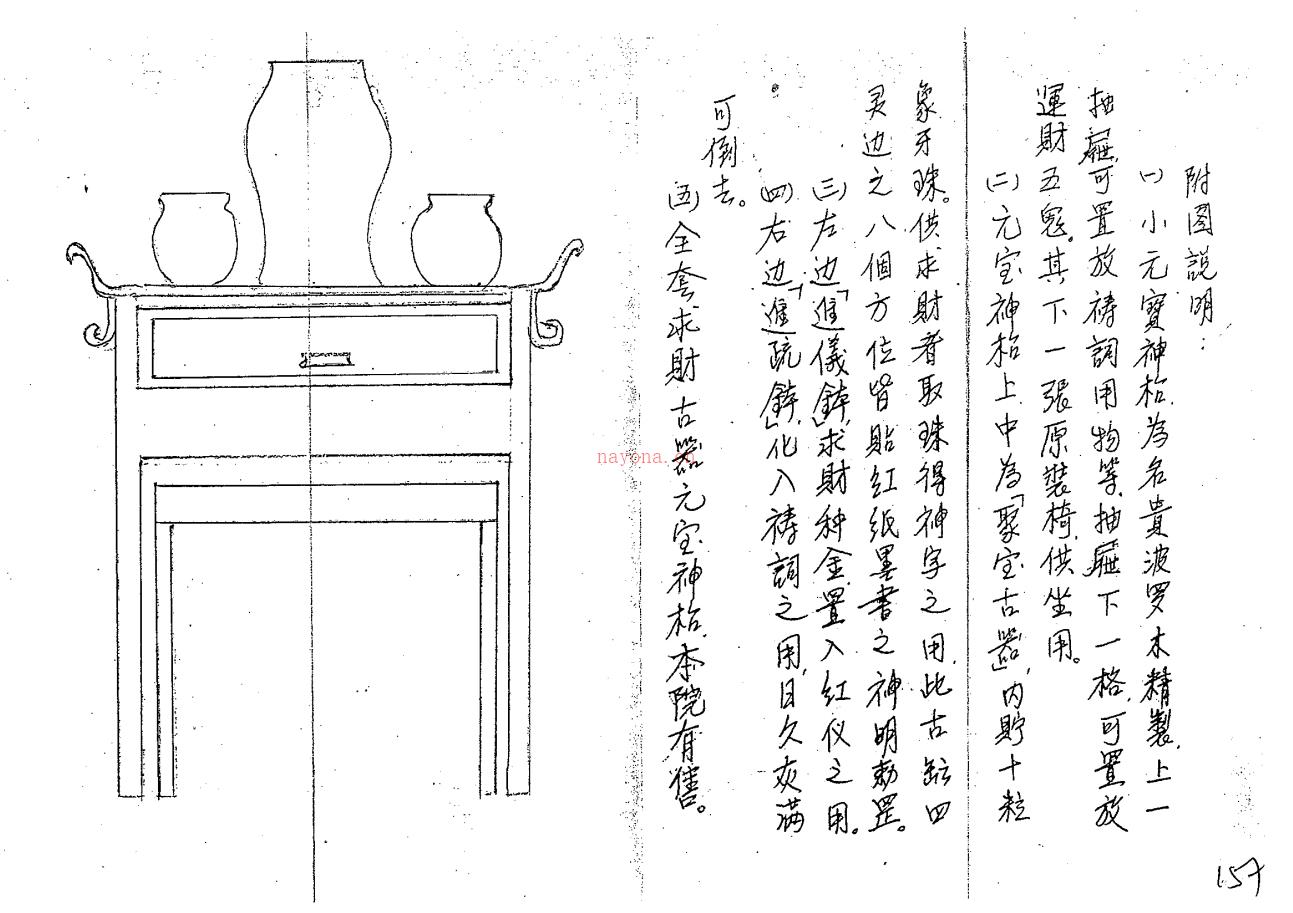 附图説明：
㈠小元寶神枱，為名貴波罗木精製，上一
抽屜，可置放祷詞用物等，抽屜下一格，可置放
運財五鬼。其下一張原裝椅，供坐用。
㈡元宝神枱上中為「聚宝古器」，内貯十粒
象牙珠。供求財者取珠得神字之用，此古缸四
灵边之八個方位皆貼红纸墨書之神明勅罡。
㈢左边「進儀鉢」，求財种金，置入红仪之用。
㈣右边「進疏鉢」，化入祷詞之用，日久灰满
可倒去。
㈤全套求財古器元宝神枱，本院有售。
nayona.cn
157